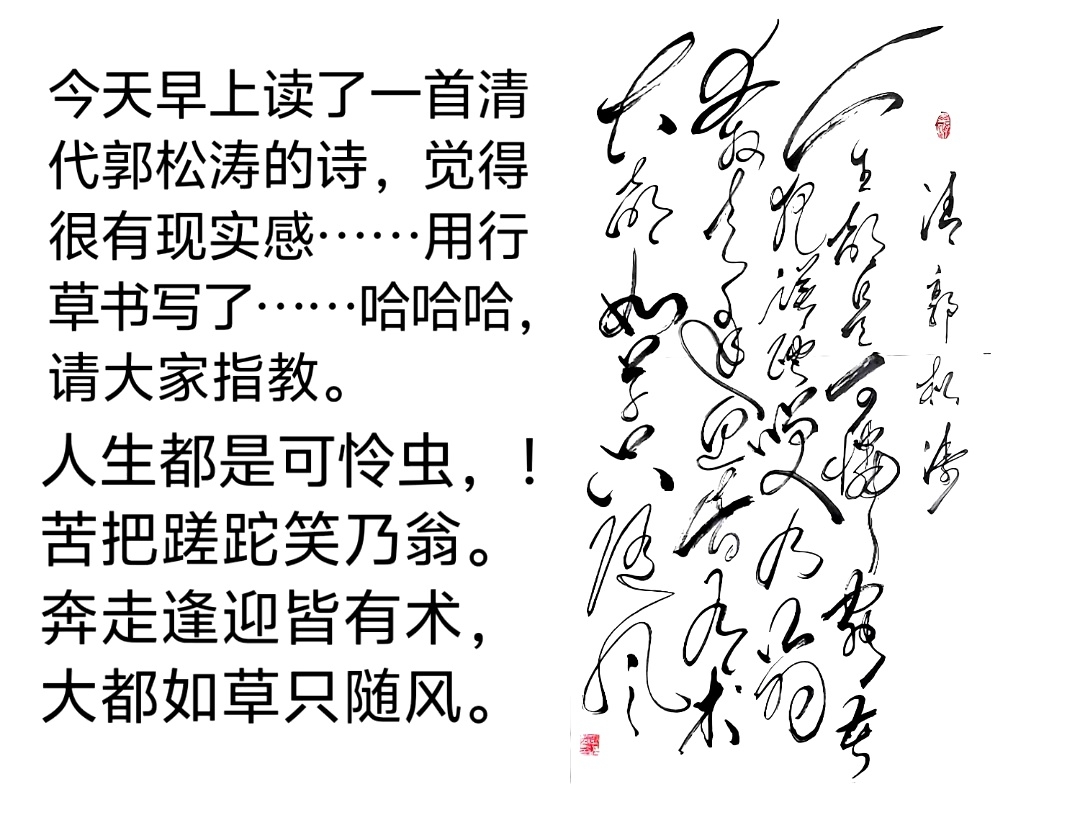 今天早上读了一首清
代郭松涛的诗，觉得
很有现实感……用行
草书写了……哈哈哈，
请大家指教。
人生都是可怜虫，！
苦把蹉跎笑乃翁。
奔走逢迎皆有术，
大都如草只随风。
清郭松涛
人生都是可怜虫苦
把蹉跎笑乃翁
奔走逢迎皆有术
大都如草只随风